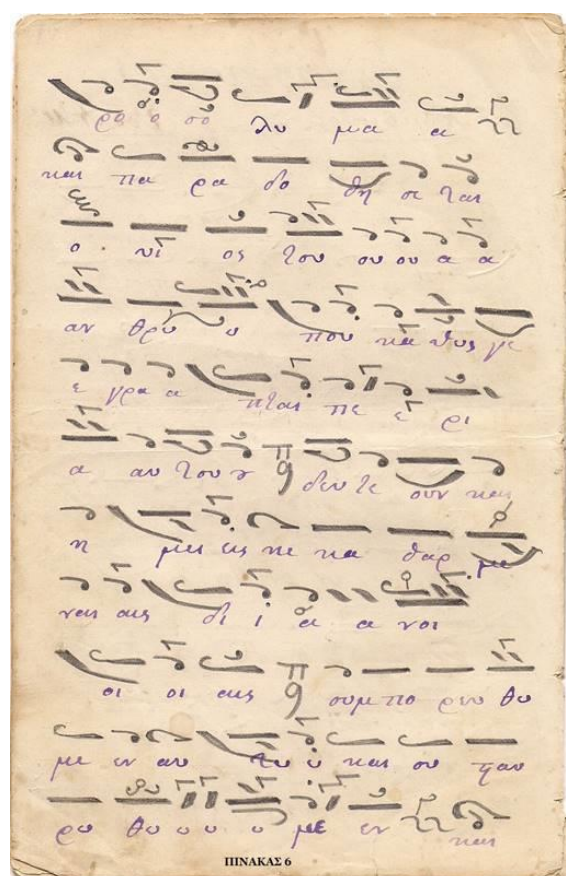 ρο ο σο λυ μα α
και πα ρα δο θη σε ται
ο υι ος του ου ου α α
αν θρω ω που κα θως γε
ε γρα α πται πε ε ρι
α αυ του ου δευ τε ουν και
η μεις κε κα θαρ με
ναις αις δι ι α α νοι
οι οι αις συμ πο ρευ θω
με εν αυ τω ω και συ σταυ
ρω θω ω ω ω με εν και
ΠΙΝΑΚΑΣ 6